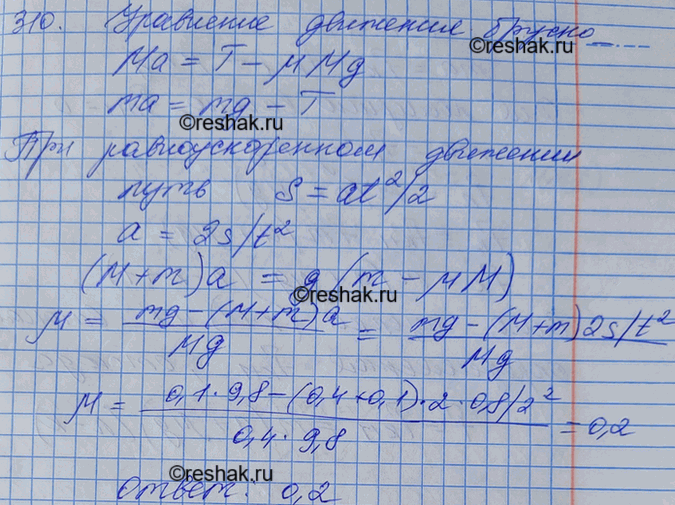 310. Уравнение движения бруска
©reshak.ru
Ma = T - μMg
ma = mg - T
©reshak.ru
При равноускоренном движении
путь S = at²/2
a = 2s/t²
(M+m)a = g(m - μM)
©reshak.ru
μ = mg-(M+m)a / Mg = mg-(M+m)2s/t² / Mg
μ = 0,1·9,8-(0,4+0,1)·2·0,8/2² / 0,4·9,8 = 0,2
©reshak.ru
ответ: 0,2